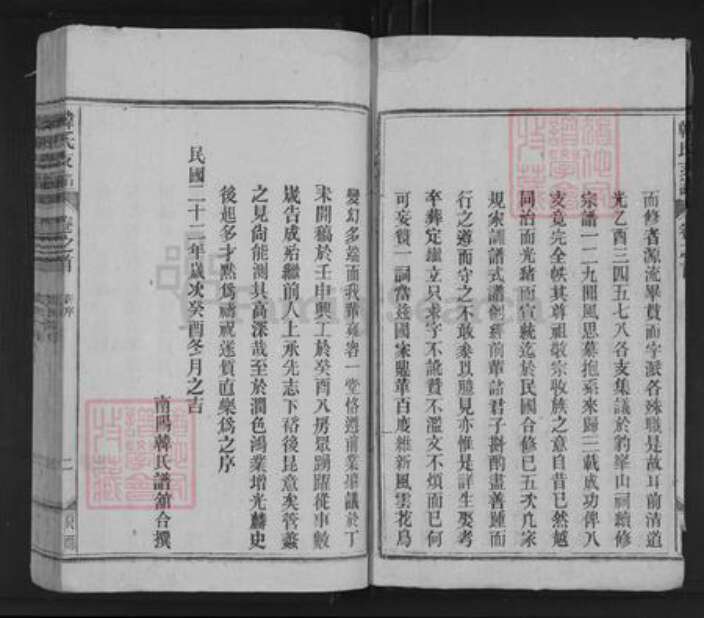 而修者源流畢貫而字派各殊職是故耳前清道
光乙酉三四五七八各支集議於豹峯山祠續修
宗譜一二九聞風思慕抱系來歸三載成功俾八
支竟完全帙其尊祖敬宗收族之意自昔已然越
同治而光緒而宣統迄於民國合修已五次凡家
規家訓譜式譜例經前輩諸君子斟酌盡善踵而
行之遵而守之不敢參以臆見亦惟是詳生娶考
卒葬定繼立只求字不訛贅不濫文不煩而已何
可妄贊一詞當茲國家鼎革百度維新風雲花鳥
變幻多端而我輩雍容一堂恪遵前業攝議於丁
未開稿於壬申興工於癸酉八房眾踴躍從事數
歲告成殆繼前人上承先志下裕後昆意矣管蠡
之見尙能測其高深哉至於潤色鴻業增光麟史
後起多才黙爲禱祝遂質直樂爲之序
民國二十二年歲次癸酉冬月之吉
南陽韓氏譜舘合撰
韓氏支譜
卷之首
新序
二